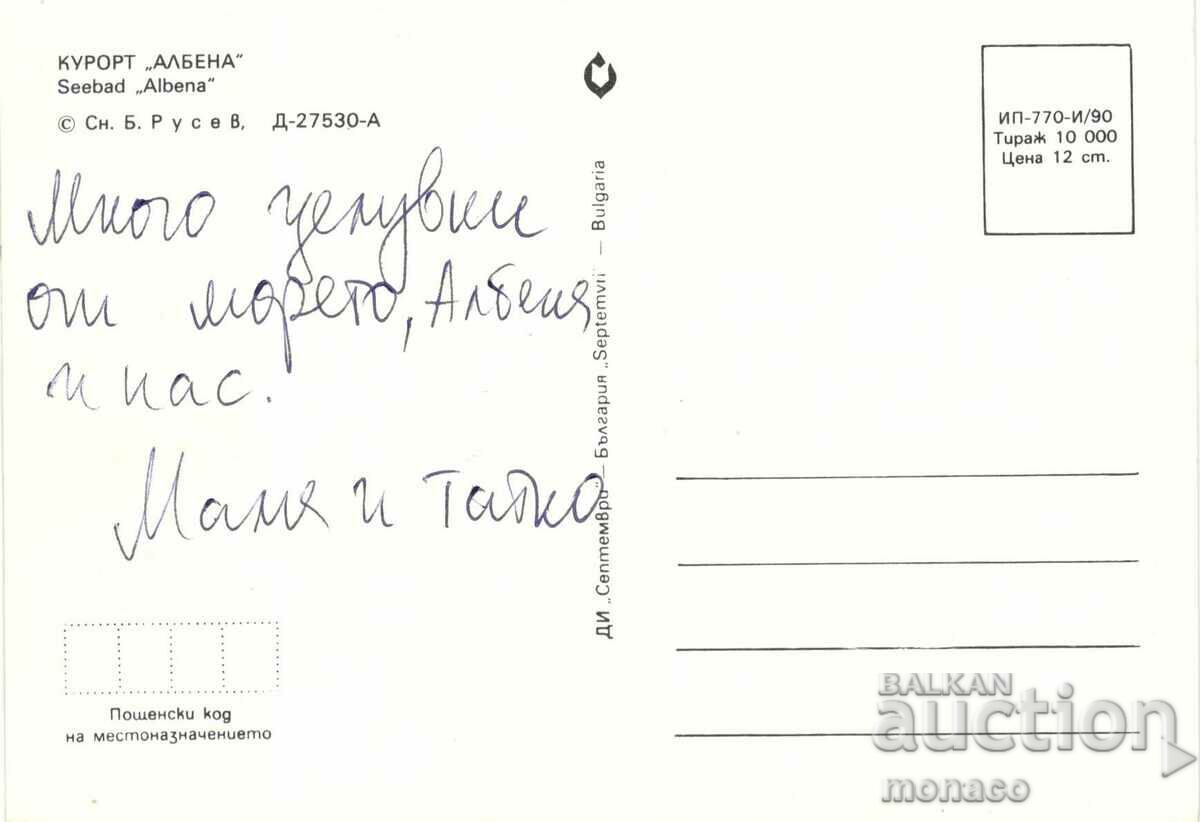 КУРОРТ „АЛБЕНА"
Seebad „Albena"
© Сн. Б. Русев, Д-27530-А
Много целувки
от морето, Албена
и нас.
Мама и Татко
ДИ „Септември" — България „Septemvri" — Bulgaria
ИП-770-И/90
Тираж 10 000
Цена 12 ст.
Пощенски код
на местоназначението
BALKAN
auction
monaco